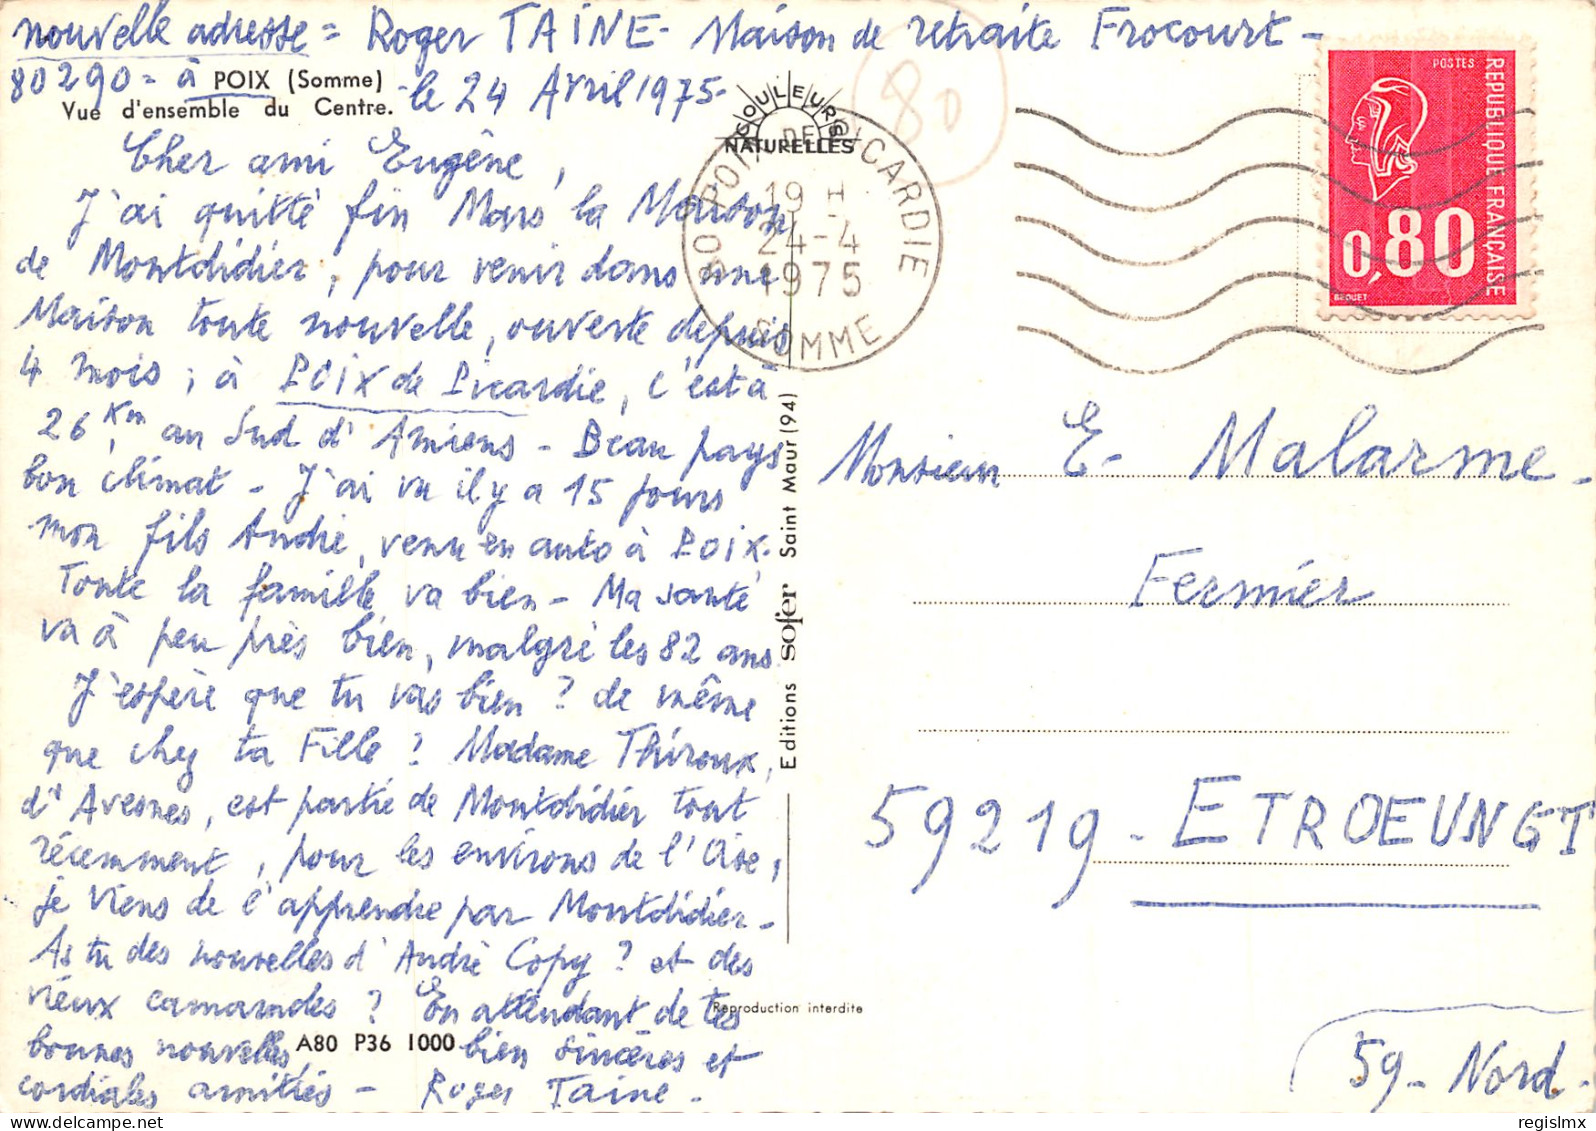 nouvelle adresse = Roger TAINE - Maison de retraite Frocourt -
80290 - à POIX (Somme) - le 24 Avril 1975 -
Vue d'ensemble du Centre.
Cher ami Eugène,
J'ai quitté fin Mars la Maison
de Montdidier, pour venir dans une
Maison toute nouvelle, ouverte depuis
4 mois, à POIX de Picardie, c'est à
26 Km au Sud d'Amiens - Beau pays
bon climat - J'ai vu il y a 15 jours
mon fils André, venu en auto à POIX.
Toute la famille va bien - Ma santé
va à peu près bien, malgré les 82 ans
J'espère que tu vas bien ? de même
que chez ta Fille ? Madame Thiroux,
d'Avesnes, est partie de Montdidier tout
récemment, pour les environs de l'Oise,
je viens de l'apprendre par Montdidier -
As tu des nouvelles d'André Copy ? et des
vieux camarades ? En attendant de tes
bonnes nouvelles, bien sincères et
cordiales amitiés - Roger Taine -
A80 P36 1000
COULEURS
NATURELLES
80 POIX DE PICARDIE
19 H
24-4
1975
SOMME
80
POSTES
REPUBLIQUE FRANÇAISE
0,80
BEQUET
Editions sofer Saint Maur (94)
Reproduction interdite
Monsieur E - Malarme -
Fermier
59219 - ETROEUNGT
59 - Nord -
regislmx